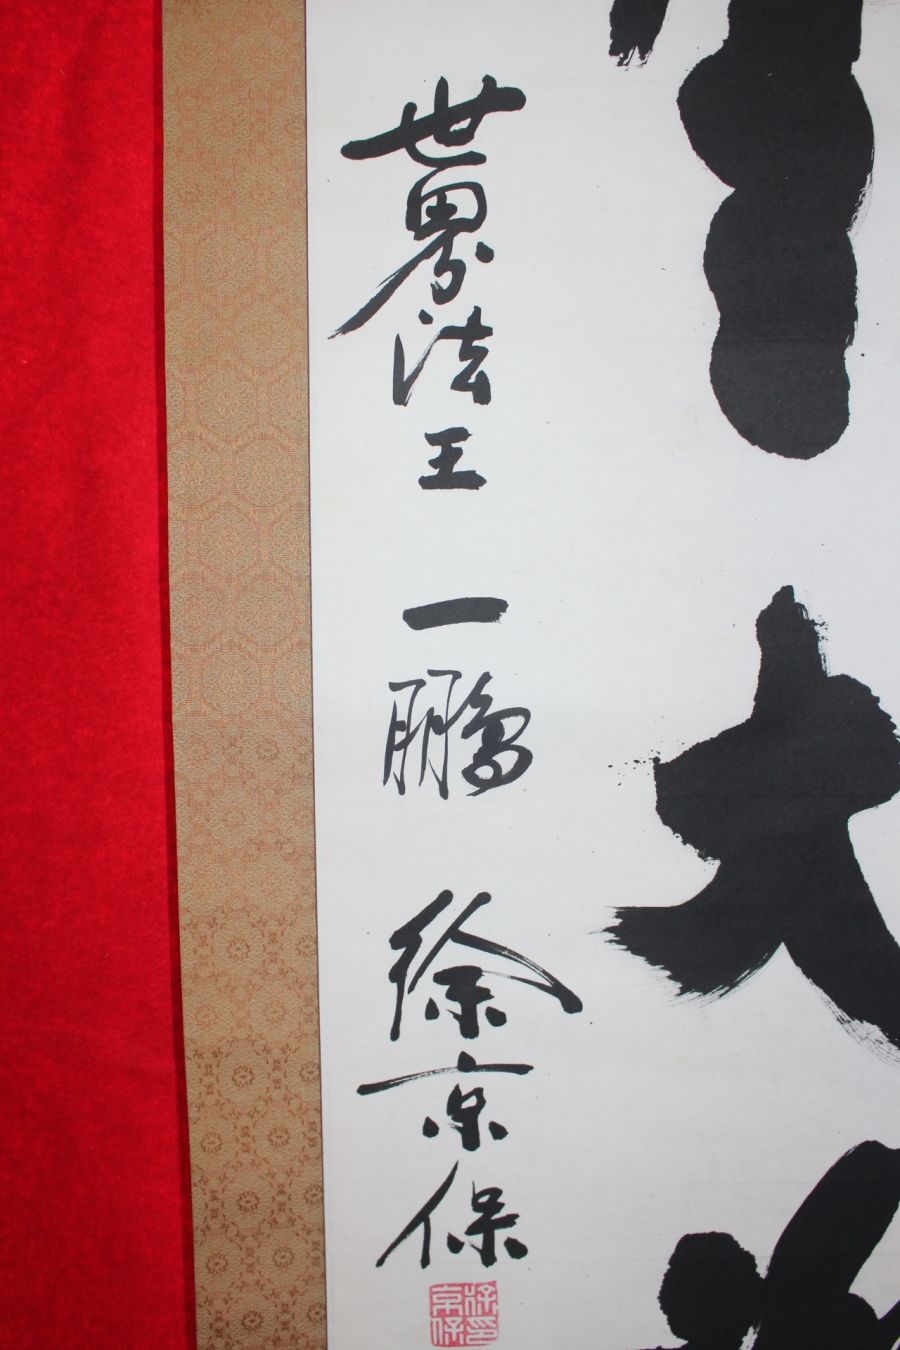 大
世界法王 一鵬 徐京保
徐印京保